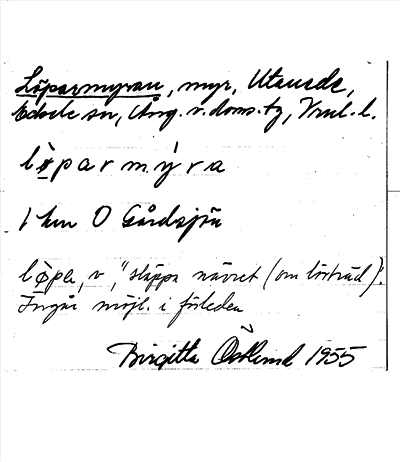 Löparmyran, myr, Utanede,
Edsele sn, Ång. v. doms. tg, Vnul. l.
lø̀parmýra
1 km O Gårdsjön
lø̀pa, v, "släppa nävret (om lövträd)".
Ingår möjl. i förleden
Birgitta Östlund 1955